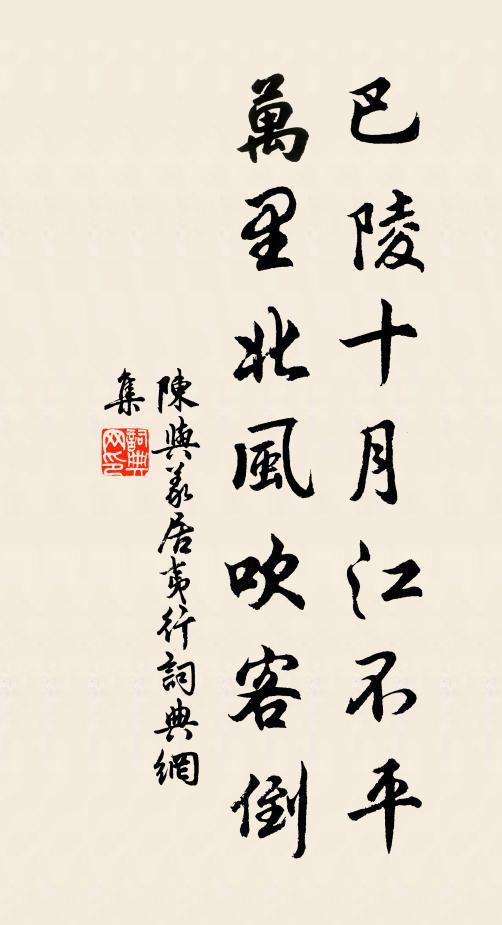 巴陵十月江不平
萬里北風吹客倒
陳與義居夷行詞典網
集
詞典
网印